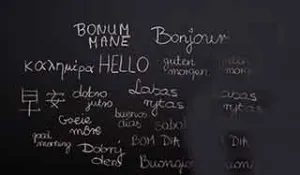 BONUM
MANE
Bonjour
καλημέρα HELLO guten
morgen
dobro
jutro
Labas
rytas
Labas
rytas
Goeie
môre
buenos
días
good
morning
Dobrý
den
BOM DIA
DIA